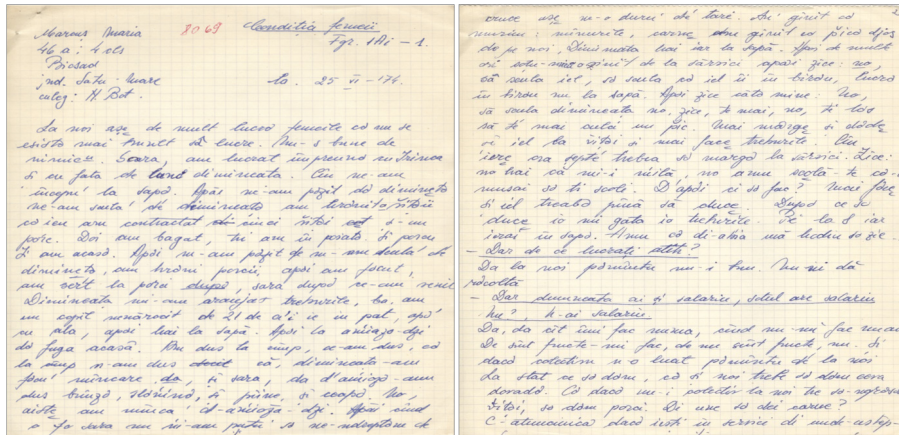 Marcus Maria
8069
Condiția femeii
46 a ; 4 cls
Fgr. 1Ai - 1.
Bicsad
jud. Satu-Mare
la. 25 VI - 174.
culeg: M. Bot.
La noi așe de mult lucră femeile că nu se
esistă mai mult să lucre. Nu-s bune de
nimic. Seara, am lucrat împreună cu Irinca
și cu fata de dimineața. Cin ne-am
la sapă. Apăi ne-am dă dimineță
ne-am dimineață am
că ieu am contractat cinci viței și-un
porc. Doi am băgat, tri am în poiată și porcu
îl am acasă. Apăi m-am sculat de
dimineță, am hrănit porcii, apoi am focul,
am la porci sara după ce-am venit
Dimineața mi-am treburile, ba am
un copil nenărocit de 21 de ai ie în pat, apă
cu ala, apoi hai la sapă. Apăi la amiaza-dzi
dă fuga acasă. Am dus la cîmp, ce-am dus, că
la cîmp n-am dus că, dimineața-am
mîncare și sara, da d'amiază am
dus brînză, slănină, și pîine, și ceapă. No,
aiste am mîncat d-amiază-dzi. Apăi cînd
o fo sara nu ni-am putut să ne-ndreptăm de
2
cruce așe ne-o durut de tari. Am gînit că
murim: mînurile, carne gînit că pică djos
de pe noi. Dimineața hai iar la sapă. Apăi de mult
ori gînit de la sărvici apăi zice: no,
că scula iel, să scula că iel îi în birou, lucră
în birou nu la sapă. Apăi zice cătă mine. No,
să scula dimineața no, zice, te mai, no, ti las
să te mai culci un pic. Mai mărge și
și iel la viței și mai face treburile. Cin
iera ora șepte trebuia să margă la sărvici. Zice:
no hai că mi-i milă, no amu scoală-te că-i
musai să ti scoli. D'apăi ci să fac? Mai face
și iel treabă pînă să duce. După ce să
duce io mi gata io treburile. Pe la 8 iar
ieram în sapă. Amu că di-abia mă hodin să zic.
- Dar de ce lucrați atît?
Da la noi pămîntu nu-i bun. Nu ni dă
răcoltă
- Dar dumneata ai și salariu, soțul are salariu
nu?, n-ai salariu
Da, da cît îmi fac numa, cînd nu-mi fac numa
De sînt fructe-mi fac, de nu sînt fructe, nu. Și
dacă colectiv n-o luat pămîntu de la noi
La stat ce să dom, că și noi trebe să dom cova
dovadă. Că dacă nu-i colectiv la noi tre să-ngrășăm
viței, să dom porci. Di une să dei carne?
C-atunumica dacă iești în servici di unde-aștep-